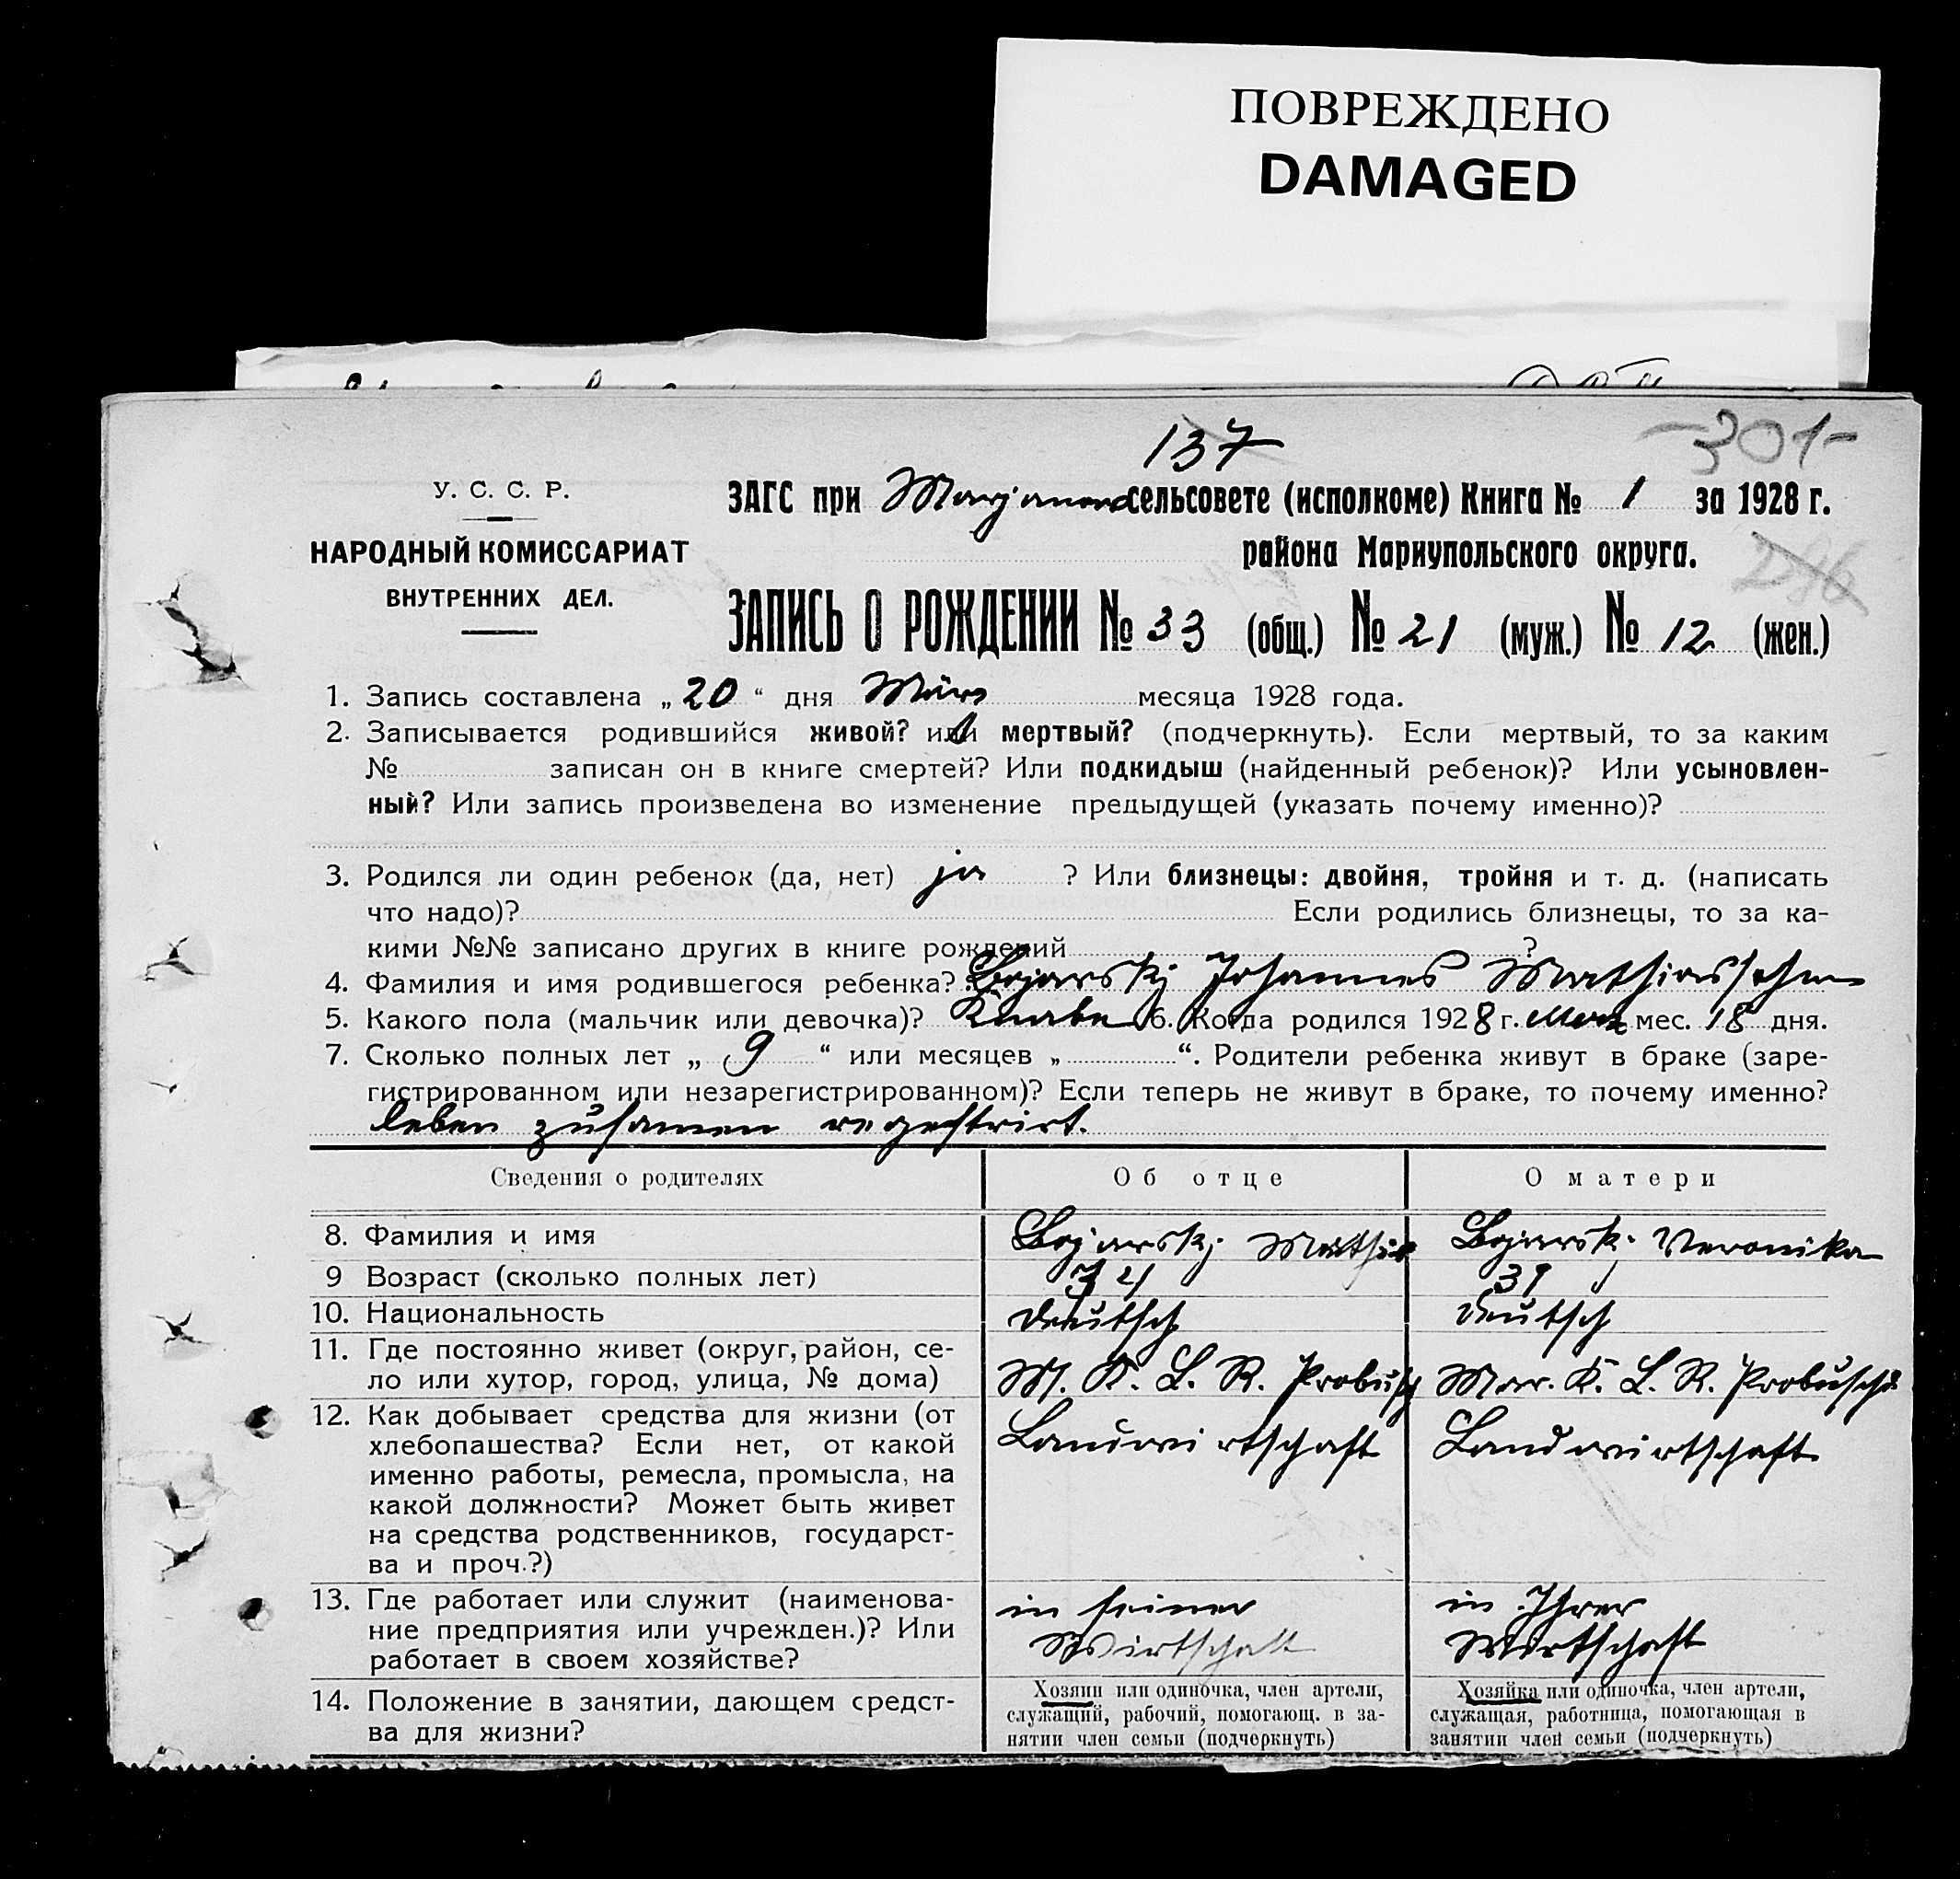 ПОВРЕЖДЕНО
DAMAGED
137
-301-
У. С. С. Р.
ЗАГС при Marjanow сельсовете (исполкоме) Книга № 1 за 1928 г.
НАРОДНЫЙ КОМИССАРИАТ
района Мариупольского округа.
286
ВНУТРЕННИХ ДЕЛ.
ЗАПИСЬ О РОЖДЕНИИ № 33 (общ.) № 21 (муж.) № 12 (жен.)
1. Запись составлена „ 20 “ дня März месяца 1928 года.
2. Записывается родившийся живой? или мертвый? (подчеркнуть). Если мертвый, то за каким
№ записан он в книге смертей? Или подкидыш (найденный ребенок)? Или усыновлен-
ный? Или запись произведена во изменение предыдущей (указать почему именно)?
3. Родился ли один ребенок (да, нет) ja ? Или близнецы: двойня, тройня и т. д. (написать
что надо)? Если родились близнецы, то за ка-
кими №№ записано других в книге рождений ?
4. Фамилия и имя родившегося ребенка? Bojarskj Johannes Mathiassohn
5. Какого пола (мальчик или девочка)? Knabe 6. Когда родился 1928 г. März мес. 18 дня.
7. Сколько полных лет „ 9 “ или месяцев „ “. Родители ребенка живут в браке (заре-
гистрированном или незарегистрированном)? Если теперь не живут в браке, то почему именно?
leben zusamen regestrirt.
Сведения о родителях Об отце О матери
8. Фамилия и имя Bojarskj Mathias Bojarski Veronika
9 Возраст (сколько полных лет) 39
10. Национальность deutsch deutsch
11. Где постоянно живет (округ, район, се-
ло или хутор, город, улица, № дома) M. K. L. R. Probusch Mar. K. L. R. Probusch
12. Как добывает средства для жизни (от Landwirtschaft Landwirtschaft
хлебопашества? Если нет, от какой
именно работы, ремесла, промысла, на
какой должности? Может быть живет
на средства родственников, государст-
ва и проч.?)
13. Где работает или служит (наименова- in seiner in Ihrer
ние предприятия или учрежден.)? Или Wirtschaft Wirtschaft
работает в своем хозяйстве?
14. Положение в занятии, дающем средст-
ва для жизни?
Хозяин или одиночка, член артели,
служащий, рабочий, помогающ. в за-
нятии член семьи (подчеркнуть)
Хозяйка или одиночка, член артели,
служащая, работница, помогающая в
занятии член семьи (подчеркнуть)